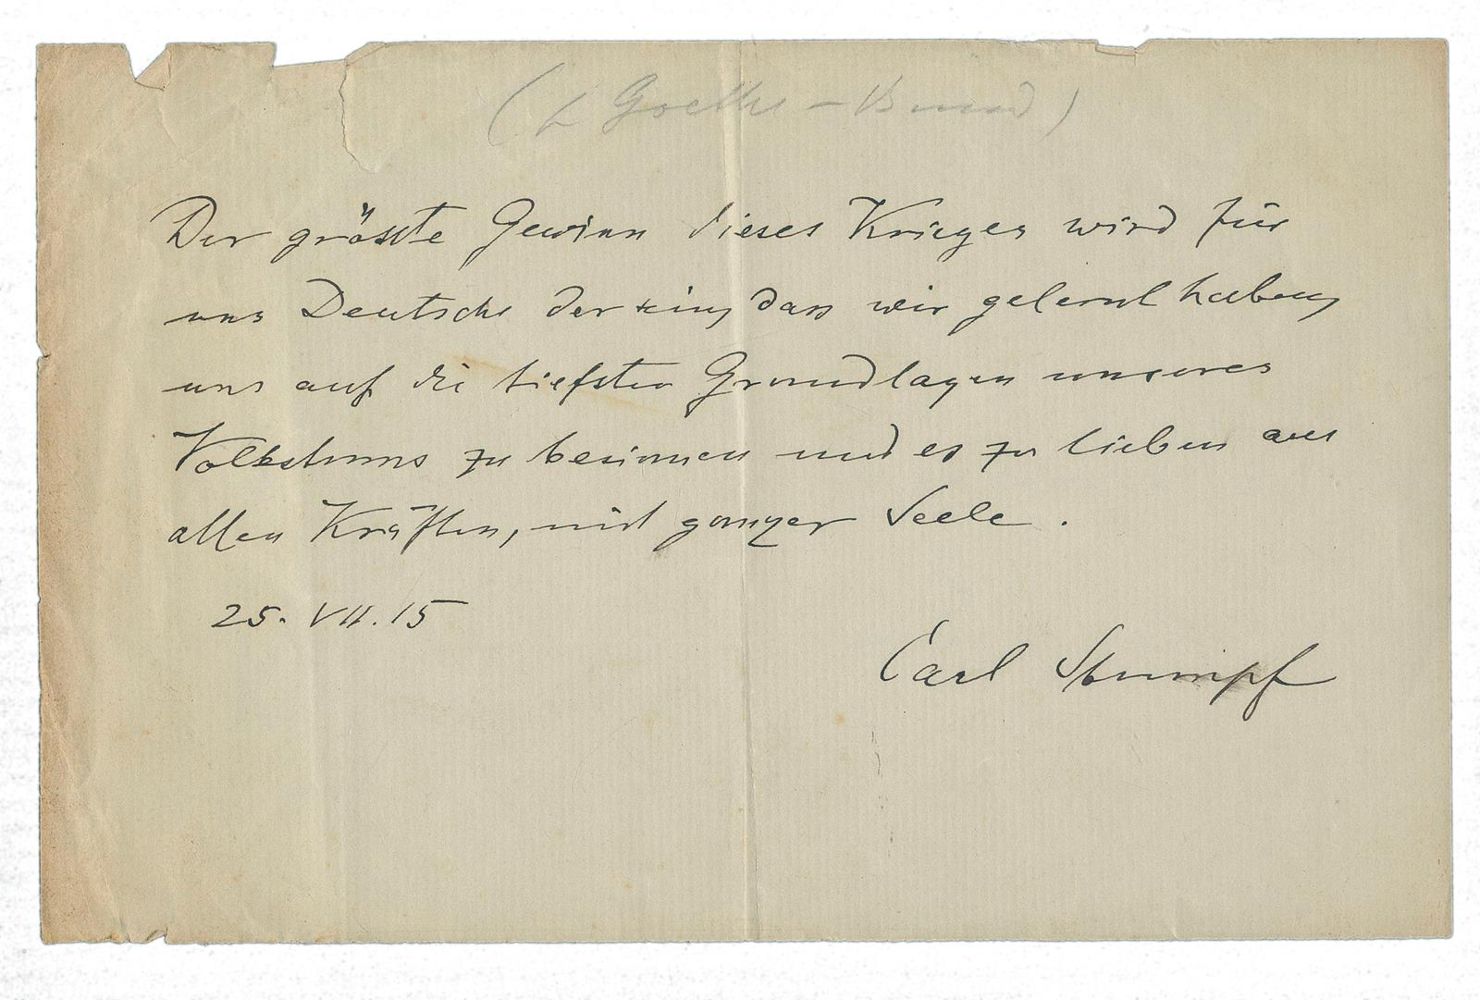 ( Goethe-Bund)
Der grösste Gewinn dieses Krieges wird für
uns Deutsche der sein, dass wir gelernt haben,
uns auf die tiefsten Grundlagen unseres
Volkstums zu besinnen und es zu lieben aus
allen Kräften, mit ganzer Seele.
25. VII. 15
Carl Stumpf